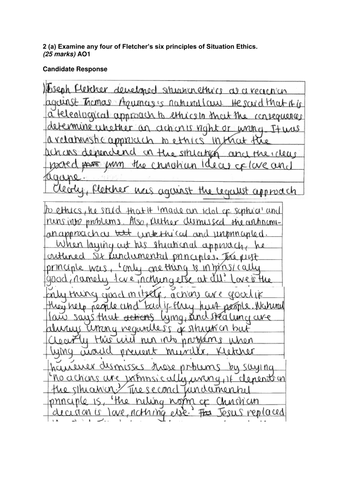 2 (a) Examine any four of Fletcher's six principles of Situation Ethics.
(25 marks) AO1
Candidate Response
Joseph Fletcher developed situation ethics as a reaction
against Thomas Aquinas's natural law. He said that it is
a teleological approach to ethics in that the consequences
determine whether an action is right or wrong. It was
a relativistic approach to ethics in that the
actions depend on the situation and the ideas
the Christian ideas of love and
agape.
Clearly, Fletcher was against the legalist approach
to ethics, he said that it 'made an idol of Sophia' and
runs into problems. Also, Fletcher dismissed the antinomi-
an approach as unethical and unprincipled.
When laying out his situational approach, he
outlined six fundamental principles. The first
principle was, 'only one thing is intrinsically
good, namely love nothing else at all'. Love is the
only thing good in itself, actions are good if
they help people and bad if they hurt people. Natural
law says that actions lying, and stealing are
always wrong regardless of situation but
clearly this will run into problems when
lying would prevent murder. Fletcher
however dismisses these problems by saying
'no actions are intrinsically wrong, it depends on
the situation'. The second fundamental
principle is, 'the ruling norm of Christian
decision is love, nothing else.' Jesus replaced